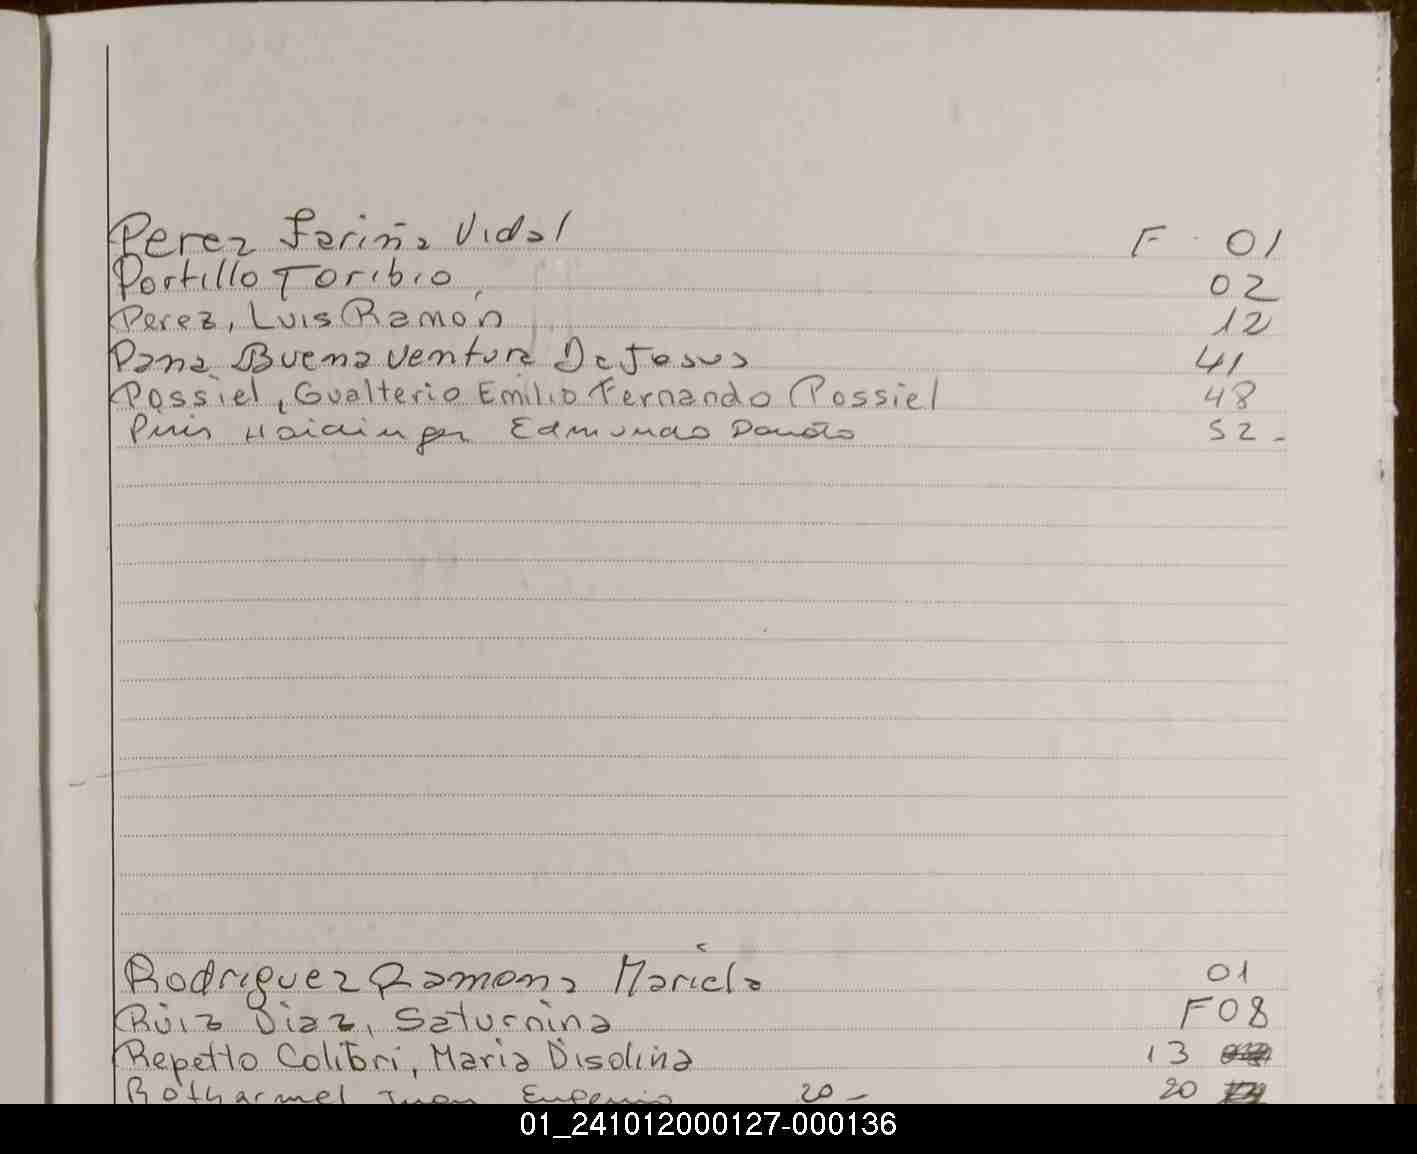 Perez Fariña Vidal F. 01
Portillo Toribio 02
Perez, Luis Ramón 12
Pana Buenaventura De Jesus 41
Possiel, Gualterio Emilio Fernando Possiel 48
Edmundo 52-
Rodriguez Ramona Mariela 01
Ruiz Diaz, Saturnina F08
Repetto Colibri, Maria Disolina 13
Rotharmel Juan Eugenio 20- 20
01_241012000127-000136